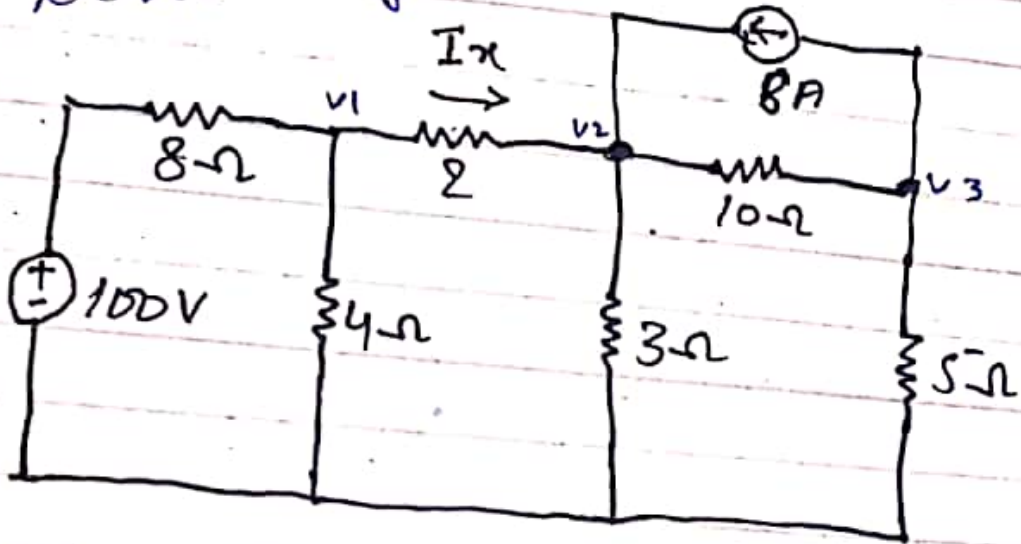 Ix
8A
V1
V2
8Ω
2
10Ω
V3
100V
4Ω
3Ω
5Ω